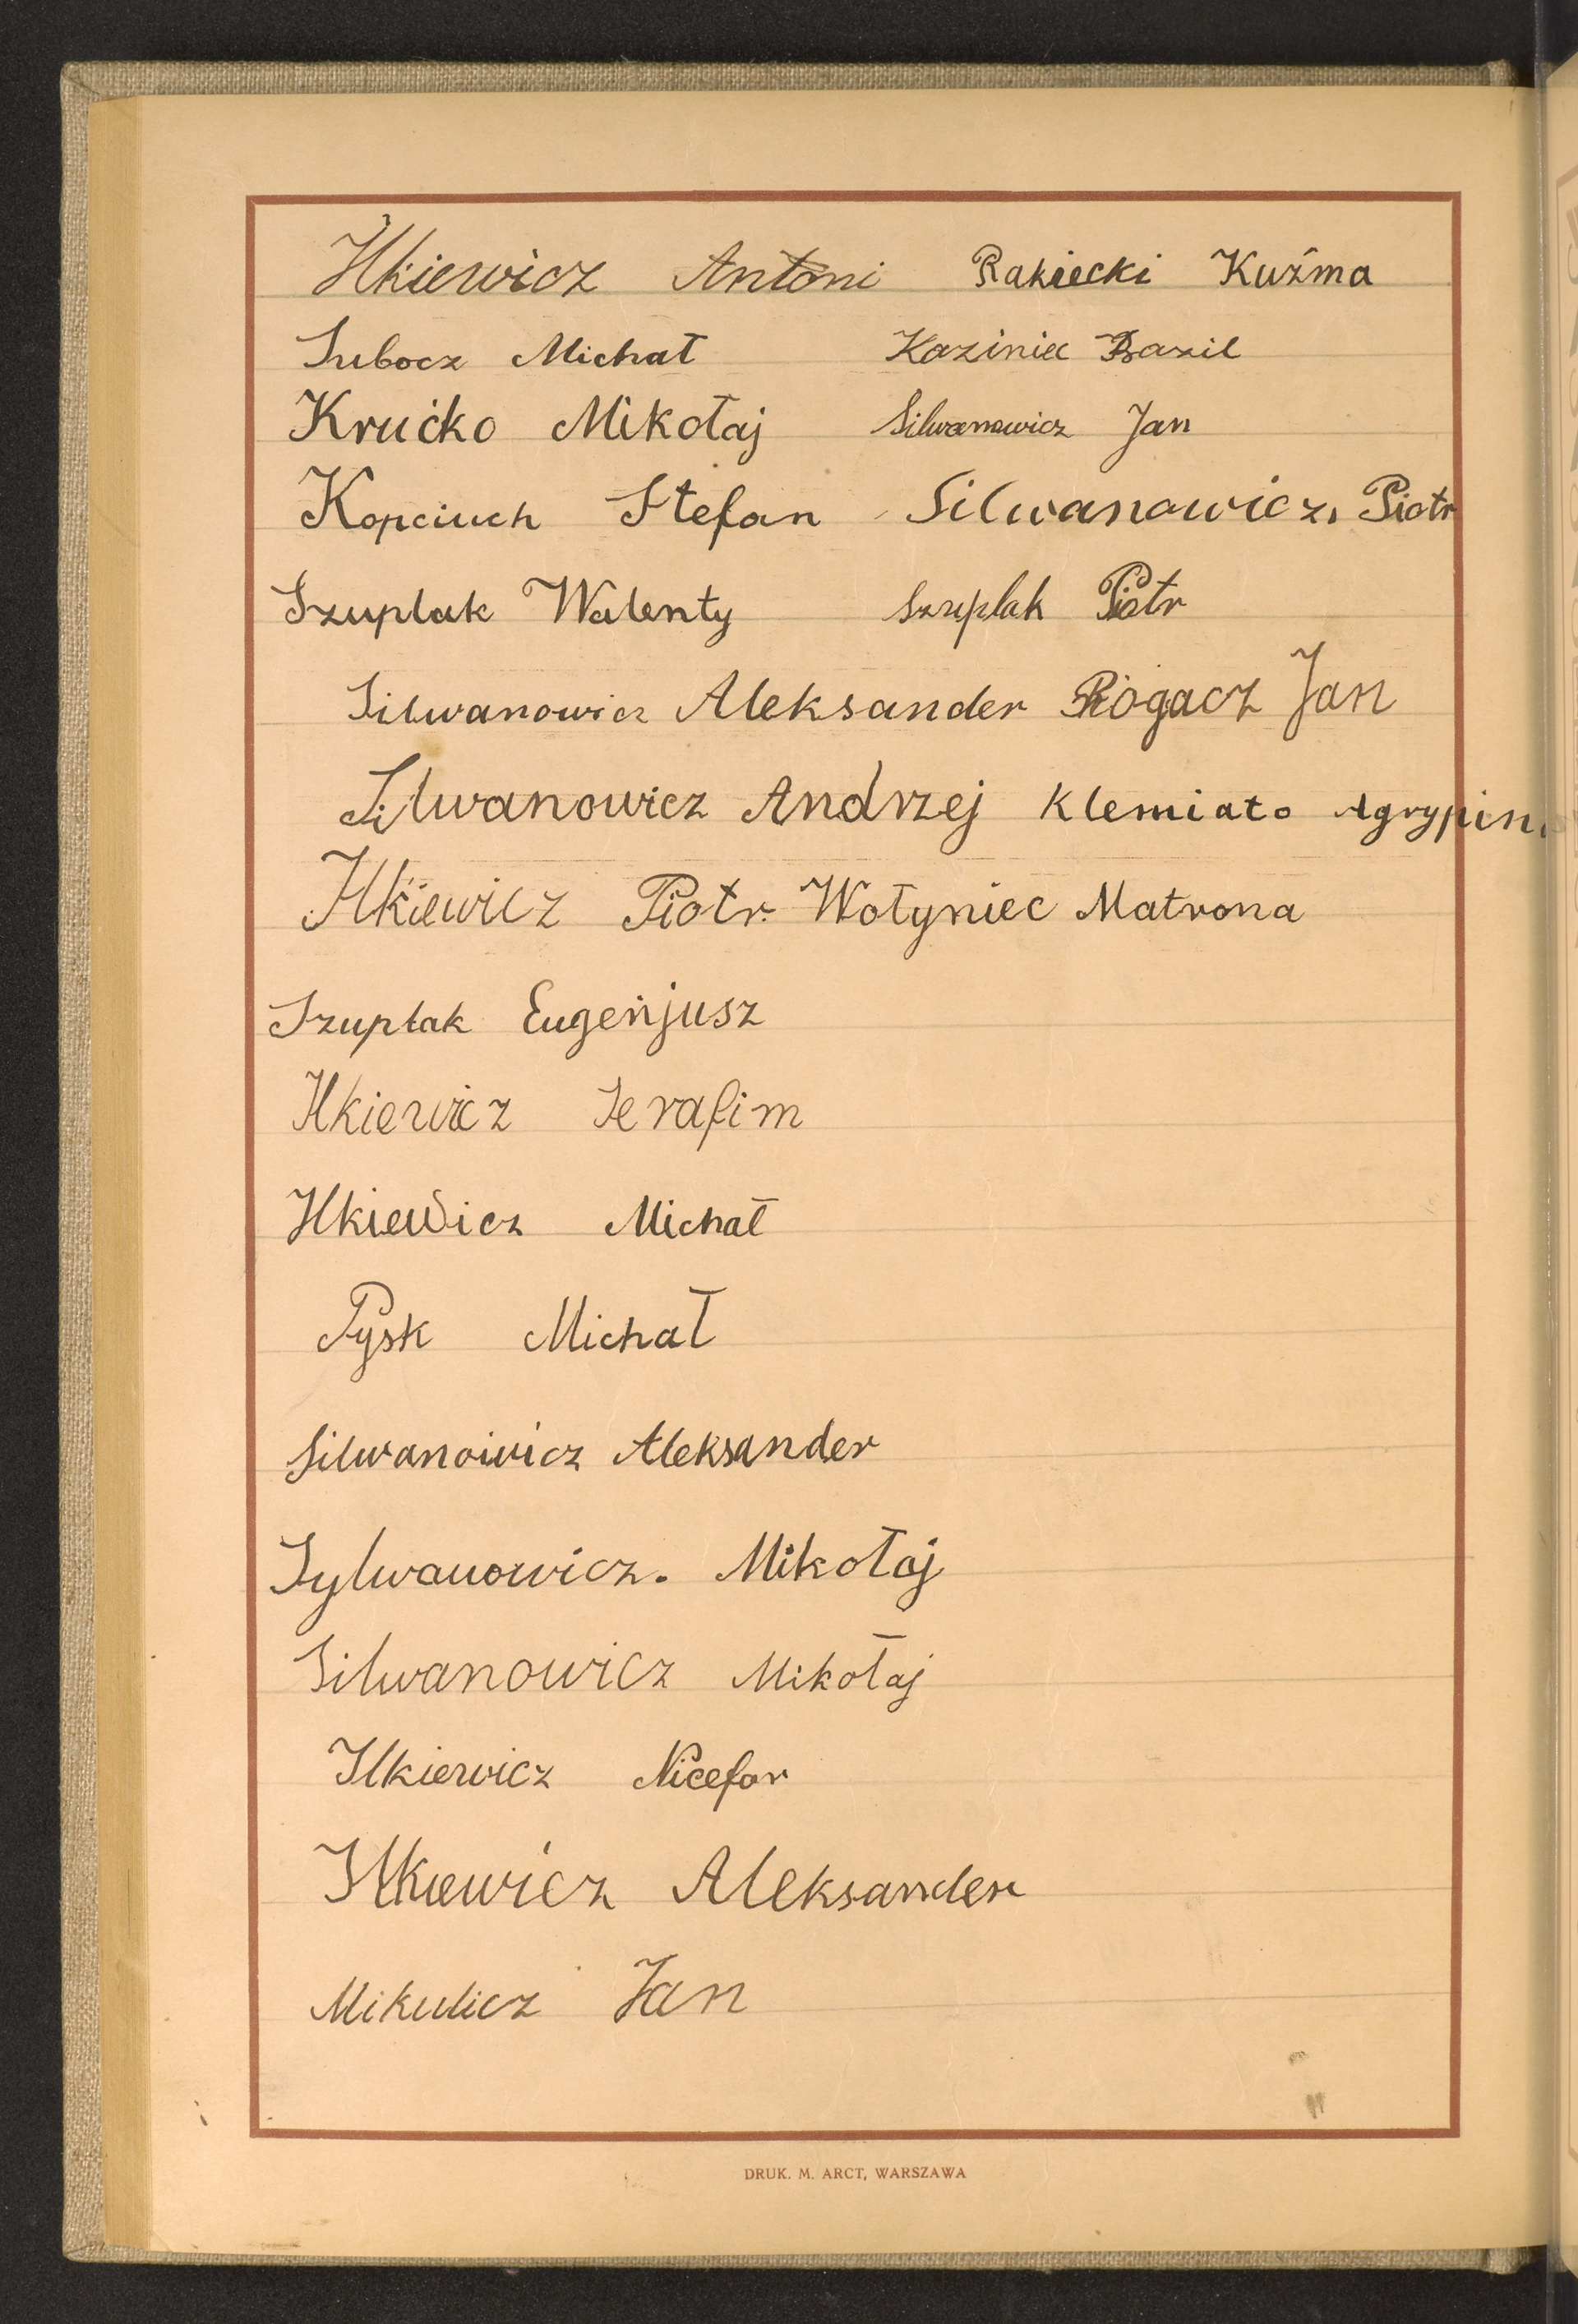 Ilkiewicz Antoni Rakiecki Kuźma
Subocz Michał Kaziniec Bazil
Krućko Mikołaj Silwanowicz Jan
Kopciuch Stefan Silwanowicz, Piotr
Szuplak Walenty Szuplak Piotr
Silwanowicz Aleksander Rogacz Jan
Silwanowicz Andrzej Klemiato Agrypin
Ilkiewicz Piotr. Wołyniec Matrona
Szuplak Eugenjusz
Ilkiewicz Serafim
Ilkiewicz Michał
Pysk Michał
Silwanowicz Aleksander
Sylwanowicz. Mikołaj
Silwanowicz Mikołaj
Ilkiewicz Nicefor
Ilkiewicz Aleksander
Mikulicz Jan
DRUK. M. ARCT, WARSZAWA